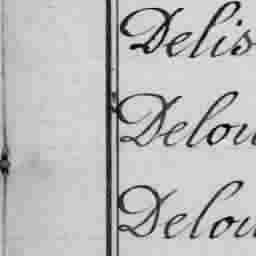 Delis
Delou
Delou